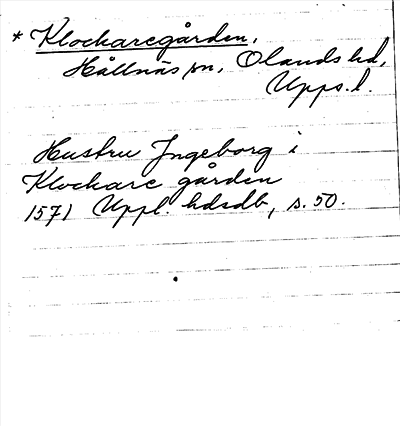 * Klockaregården,
Hållnäs sn, Olands hd,
Upps. l.
Hustru Jngeborg i
Klockare gården
1571 Uppl. hdsdb, s. 50.